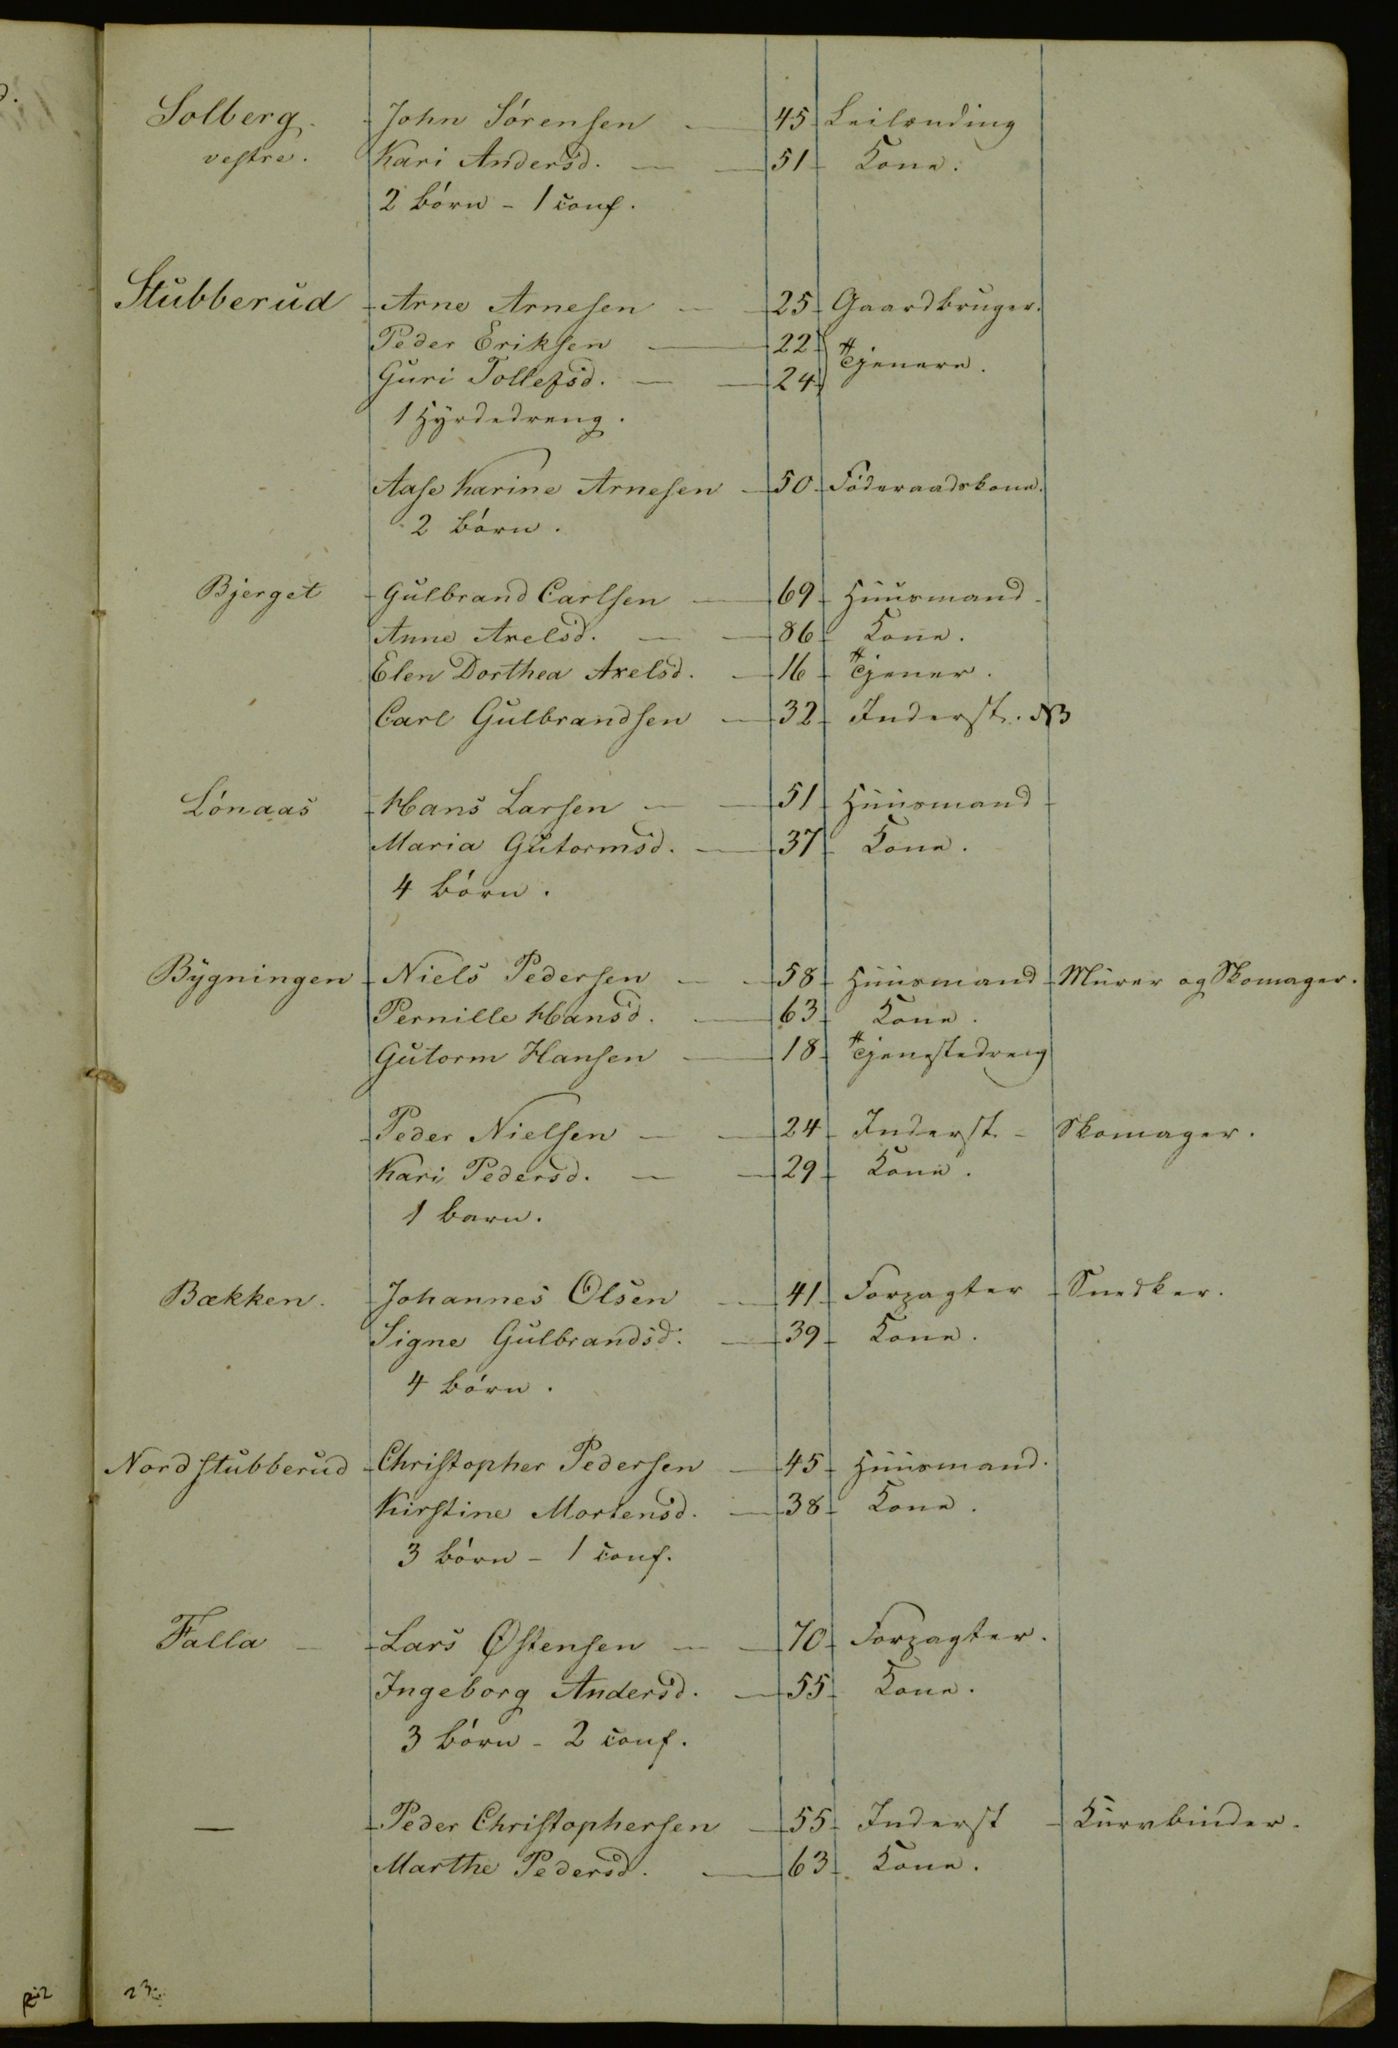 Solberg. John Sörensen — 45 Leilænding
vestre. Kari Andersd. — — 51 Kone.
2 börn - 1 conf.
Stubberud Arne Arnesen — — 25 Gaardbruger.
Peder Eriksen — 22 Tjenere.
Guri Tollefsd. — — 24
1 Hyrdedreng.
Aase Karine Arnesen — 50 Föderaadskone.
2 börn.
Bjerget Gulbrand Carlsen — 69 Huusmand
Anne Axelsd. — — 86 Kone.
Elen Dorthea Axelsd. — 16 Tjener.
Carl Gulbrandsen — 32 Inderst. NB
Lönaas Hans Larsen — — 51 Huusmand
Maria Gutormsd. — 37 Kone.
4 börn.
Bygningen Niels Pedersen — — 58 Huusmand Murer og Skomager.
Pernille Hansd. — 63 Kone.
Gutorm Hansen — 18 Tjenestedreng
Peder Nielsen — — 24 Inderst - Skomager.
Kari Pedersd. — — 29 Kone.
1 barn.
Bækken. Johannes Olsen — 41 Forpagter Snedker.
Signe Gulbrandsd. — 39 Kone.
4 börn.
Nordstubberud Christopher Pedersen — 45 Huusmand.
Kirstine Mortensd. — 38 Kone.
3 börn - 1 conf.
Falla — Lars Østensen — — 70 Forpagter.
Ingeborg Andersd. — 55 Kone.
3 börn - 2 conf.
— Peder Christophersen — 55 Inderst - Kurvbinder.
Marthe Pedersd. — 63 Kone.
23